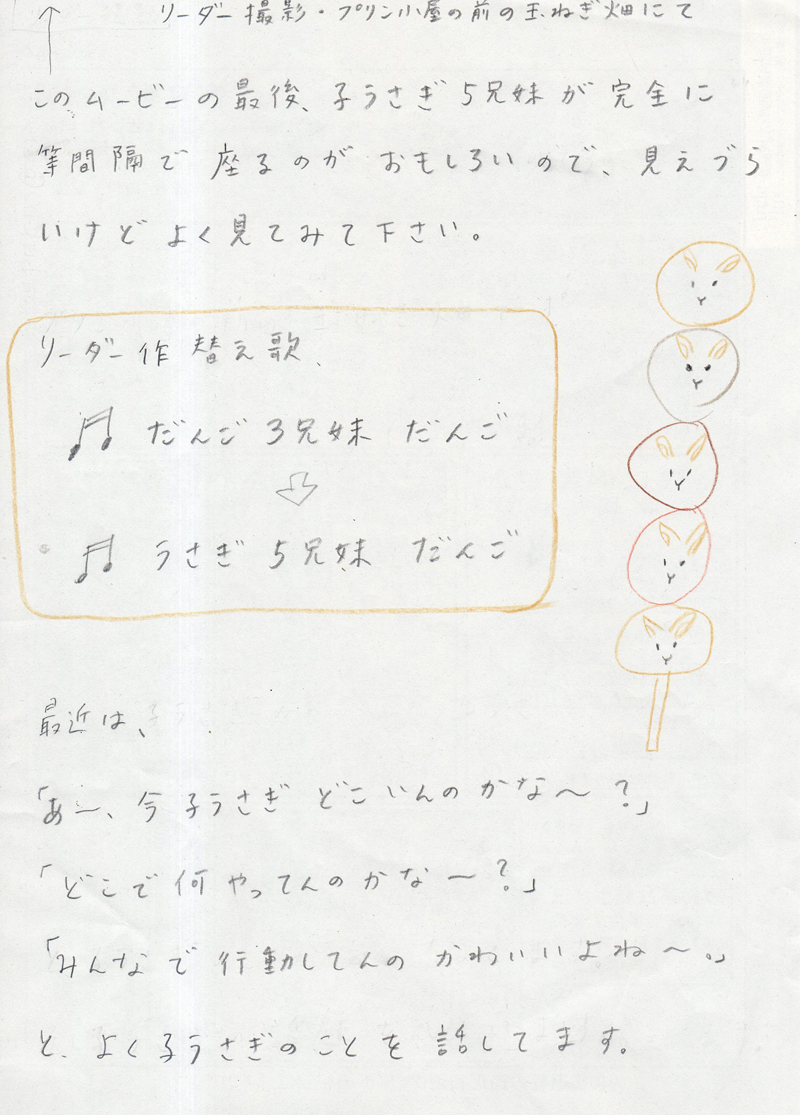 リーダー撮影・プリン小屋の前の玉ねぎ畑にて
このムービーの最後、子うさぎ5兄妹が完全に
等間隔で座るのがおもしろいので、見えづら
いけどよく見てみて下さい。
リーダー作替え歌、
♫ だんご3兄妹 だんご
♫ うさぎ5兄妹 だんご
最近は、
「あ〜、今子うさぎどこいんのかな〜？」
「どこで何やってんのかな〜？」
「みんなで行動してんのかわいいよね〜。」
と、よく子うさぎのことを話してます。